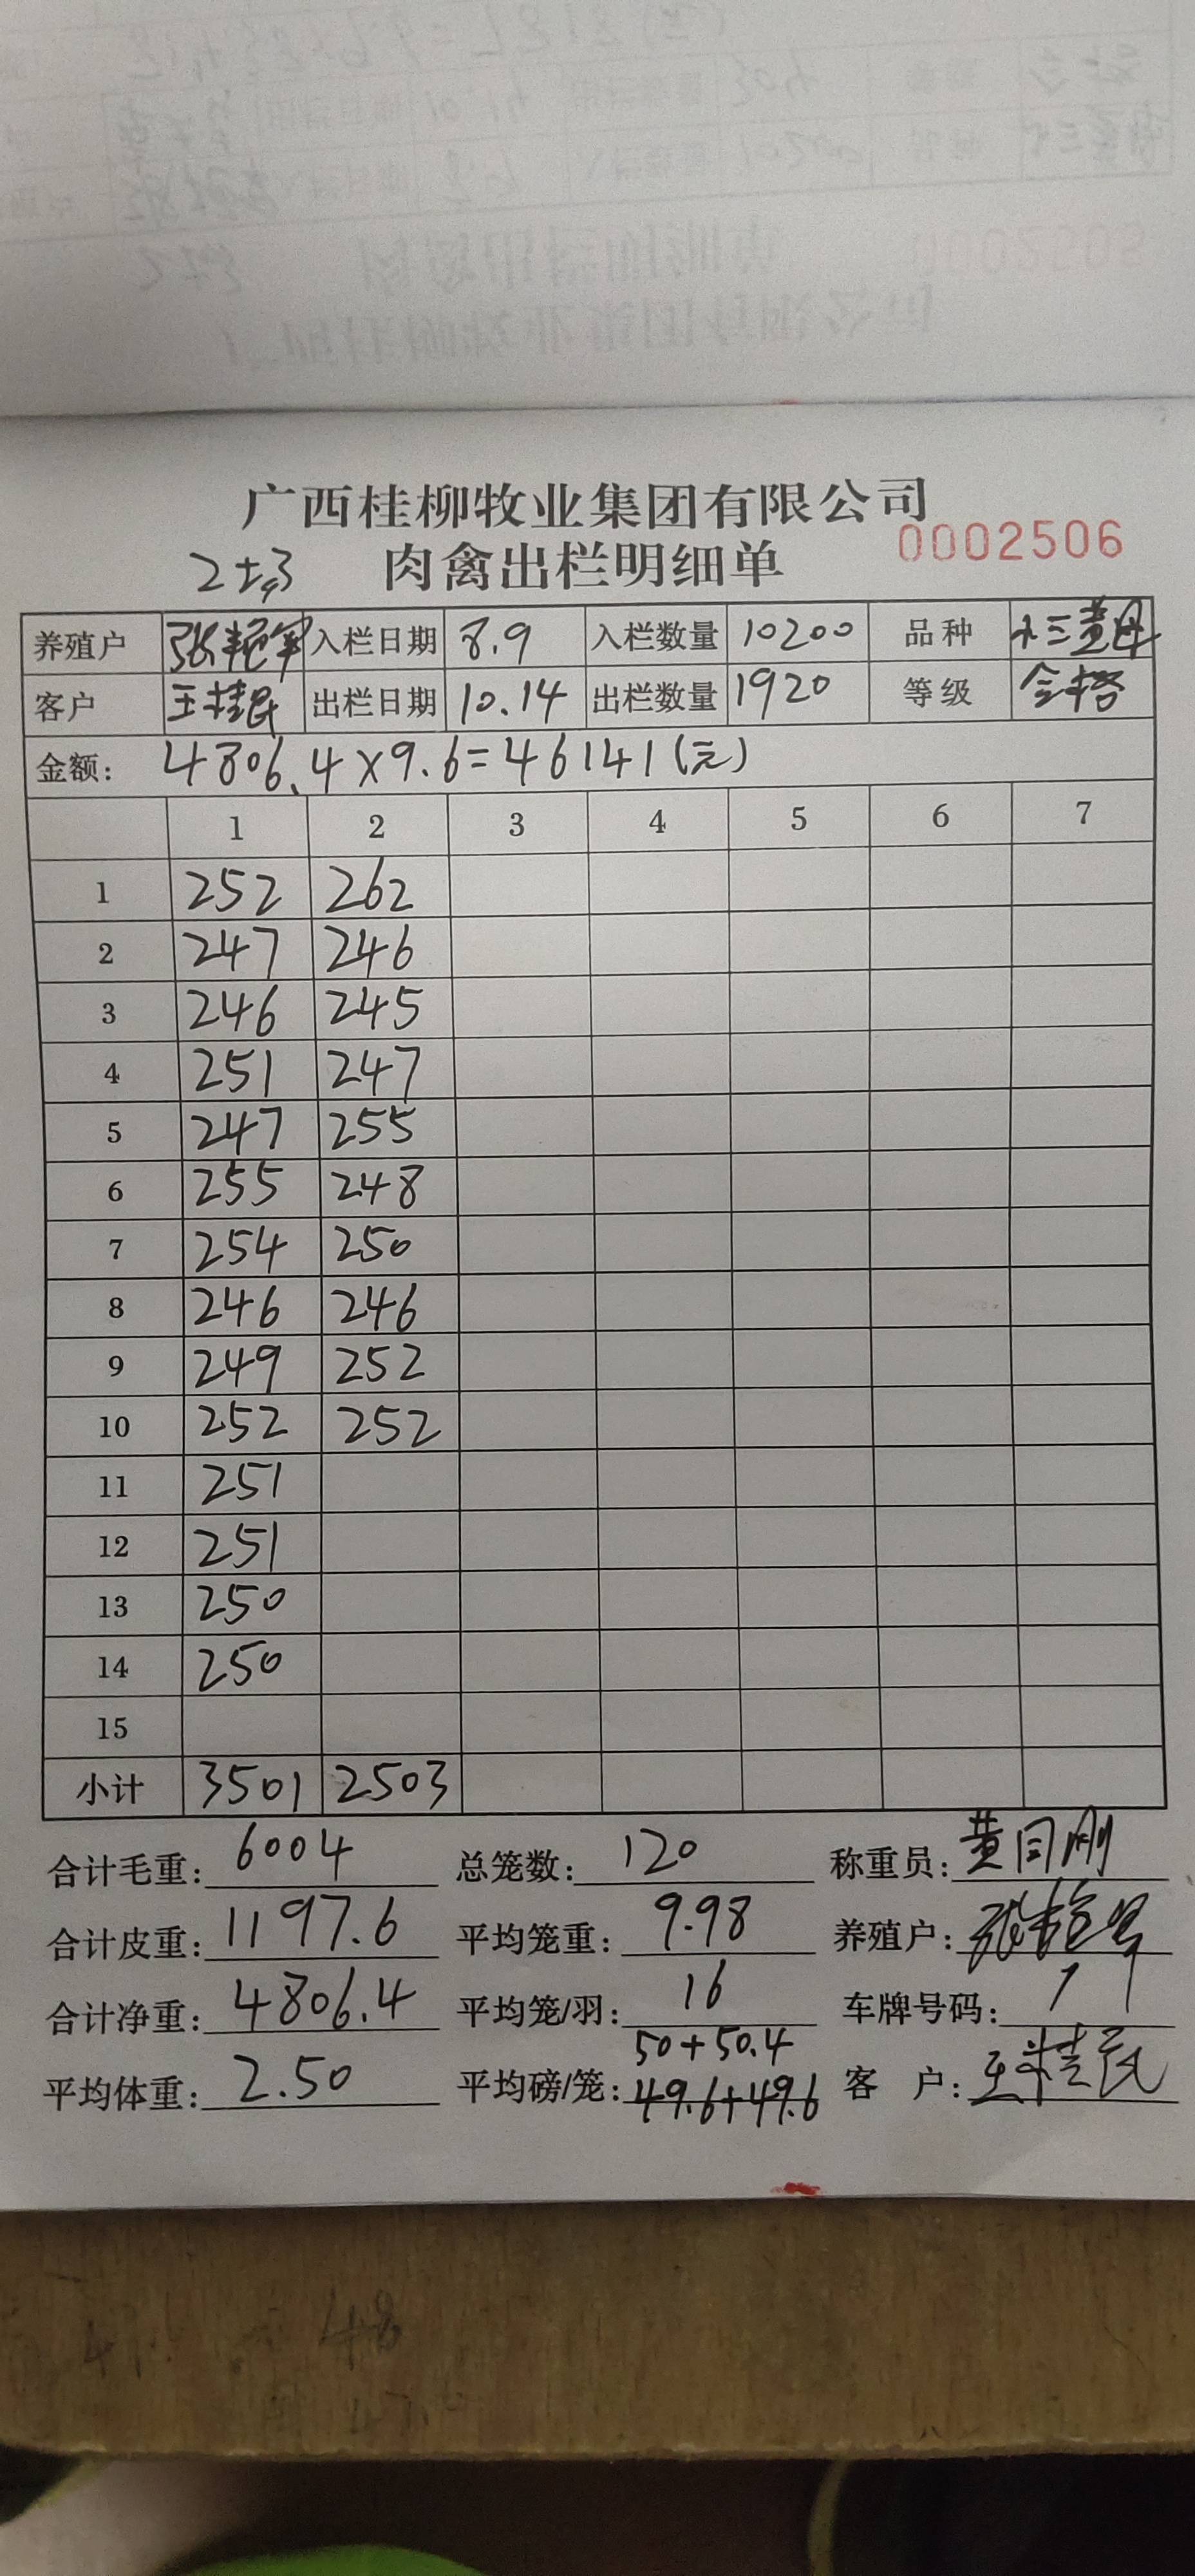 广西桂柳牧业集团有限公司
肉禽出栏明细单 0002506
养殖户 张艳军 入栏日期 8.9 入栏数量 10200 品种 小三黄母
客户 王桂民 出栏日期 10.14 出栏数量 1920 等级 合格
金额: 4806.4×9.6=46141(元)
1 2 3 4 5 6 7
1 252 262
2 247 246
3 246 245
4 251 247
5 247 255
6 255 248
7 254 250
8 246 246
9 249 252
10 252 252
11 251
12 251
13 250
14 250
15
小计 3501 2503
合计毛重: 6004 总笼数: 120 称重员: 黄同刚
合计皮重: 1197.6 平均笼重: 9.98 养殖户: 张艳军
合计净重: 4806.4 平均笼/羽: 16 车牌号码:
50+50.4
平均体重: 2.50 平均磅/笼: 49.6+49.6 客 户: 王桂民